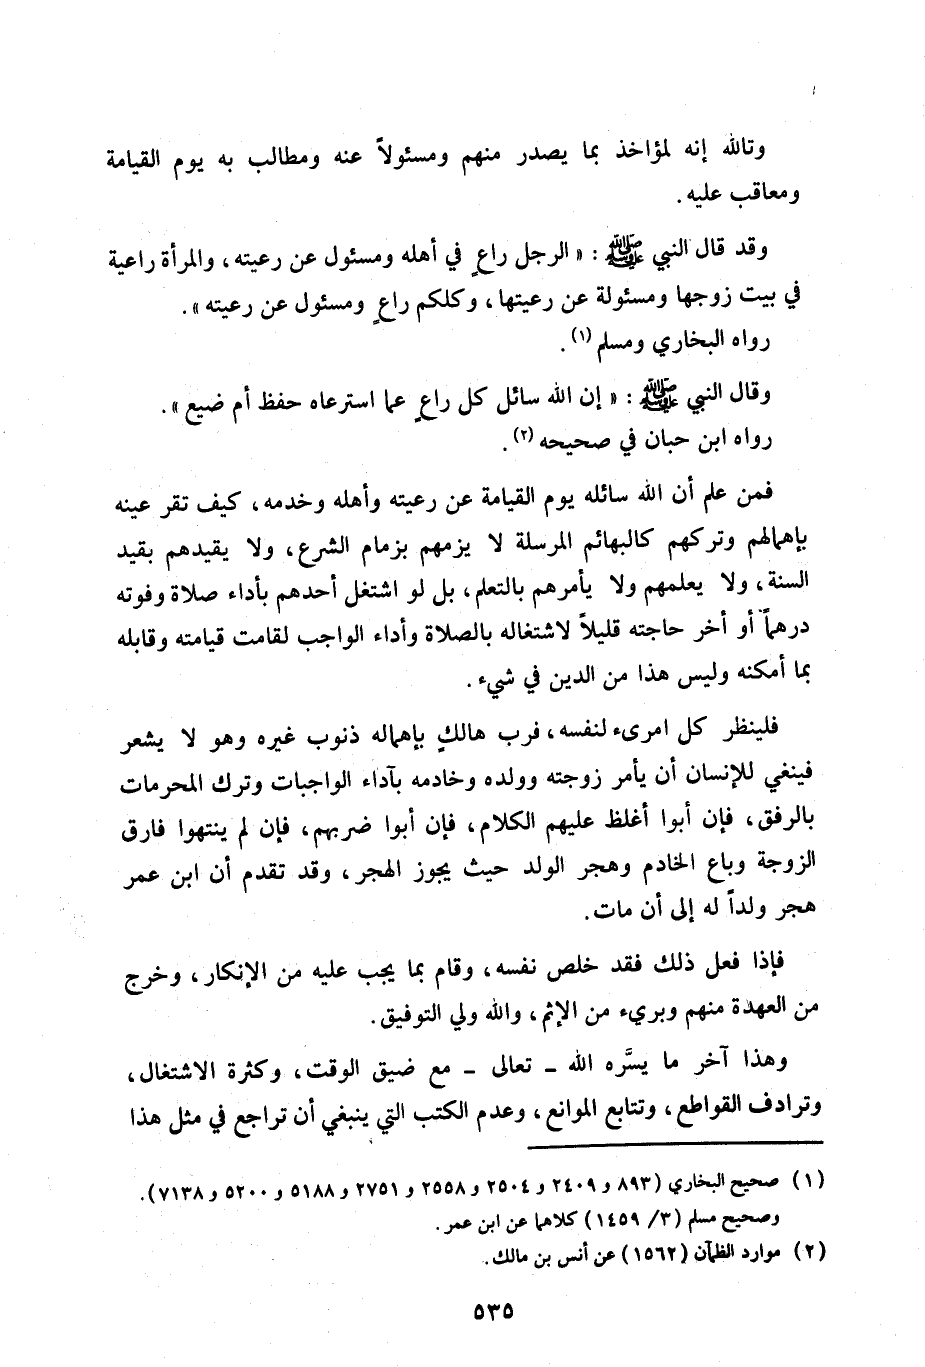 وتالله إنه لمؤاخذ بما يصدر منهم ومسئولاً عنه ومطالب به يوم القيامة
ومعاقب عليه .
وقد قال النبي ﷺ : « الرجل راعٍ في أهله ومسئول عن رعيته ، والمرأة راعية
في بيت زوجها ومسئولة عن رعيتها ، وكلكم راعٍ ومسئول عن رعيته » .
رواه البخاري ومسلم (١) .
وقال النبي ﷺ : « إن الله سائل كل راعٍ عما استرعاه حفظ أم ضيع » .
رواه ابن حبان في صحيحه (٢) .
فمن علم أن الله سائله يوم القيامة عن رعيته وأهله وخدمه ، كيف تقر عينه
بإهمالهم وتركهم كالبهائم المرسلة لا يزمهم بزمام الشرع ، ولا يقيدهم بقيد
السنة ، ولا يعلمهم ولا يأمرهم بالتعلم ، بل لو اشتغل أحدهم بأداء صلاة وفوته
درهماً أو أخر حاجته قليلاً لاشتغاله بالصلاة وأداء الواجب لقامت قيامته وقابله
بما أمكنه وليس هذا من الدين في شيء .
فلينظر كل امرىء لنفسه ، فرب هالكٍ بإهماله ذنوب غيره وهو لا يشعر
فينغي للإنسان أن يأمر زوجته وولده وخادمه بآداء الواجبات وترك المحرمات
بالرفق ، فإن أبوا أغلظ عليهم الكلام ، فإن أبوا ضربهم ، فإن لم ينتهوا فارق
الزوجة وباع الخادم وهجر الولد حيث يجوز الهجر ، وقد تقدم أن ابن عمر
هجر ولداً له إلى أن مات .
فإذا فعل ذلك فقد خلص نفسه ، وقام بما يجب عليه من الإنكار ، وخرج
من العهدة منهم وبريء من الإثم ، والله ولي التوفيق .
وهذا آخر ما يسَّره الله ـ تعالى ـ مع ضيق الوقت ، وكثرة الاشتغال ،
وترادف القواطع ، وتتابع الموانع ، وعدم الكتب التي ينبغي أن تراجع في مثل هذا
(١) صحيح البخاري (٨٩٣ و ٢٤٠٩ و ٢٥٠٤ و ٢٥٥٨ و ٢٧٥١ و ٥١٨٨ و ٥٢٠٠ و ٧١٣٨) .
وصحيح مسلم (٣/ ١٤٥٩) كلاهما عن ابن عمر .
(٢) موارد الظمآن (١٥٦٢) عن أنس بن مالك .
٥٣٥